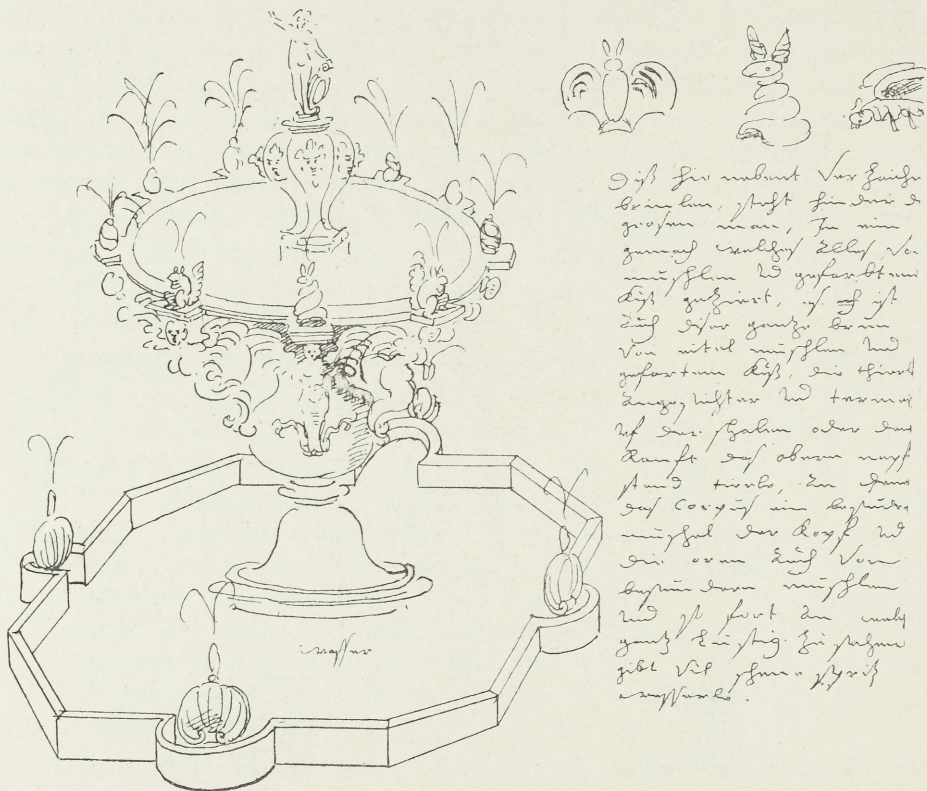 Diß hie nebent Ver Zaichn
brinlen, steht hinder d
grosen man, In ein
gemach welches Alles vo
muschlen Vnd geferbtem
Kiß geziert, ist
Auch diser gantze brun
Von eitel muschlen Vnd
gefertem Kiß, die thierl
Angesichter Vnd termei
Vf der schalen oder dem
Ranft des obern napf
stend tierlo, An denen
das Corpus ein besunder
muschel der Kopf Vnd
die oren Auch Von
besundern muschlen
Vnd so fort An welch
gantz Lustig Zu sehen
gibt Vil schene spritz
wasserlo.
wasser